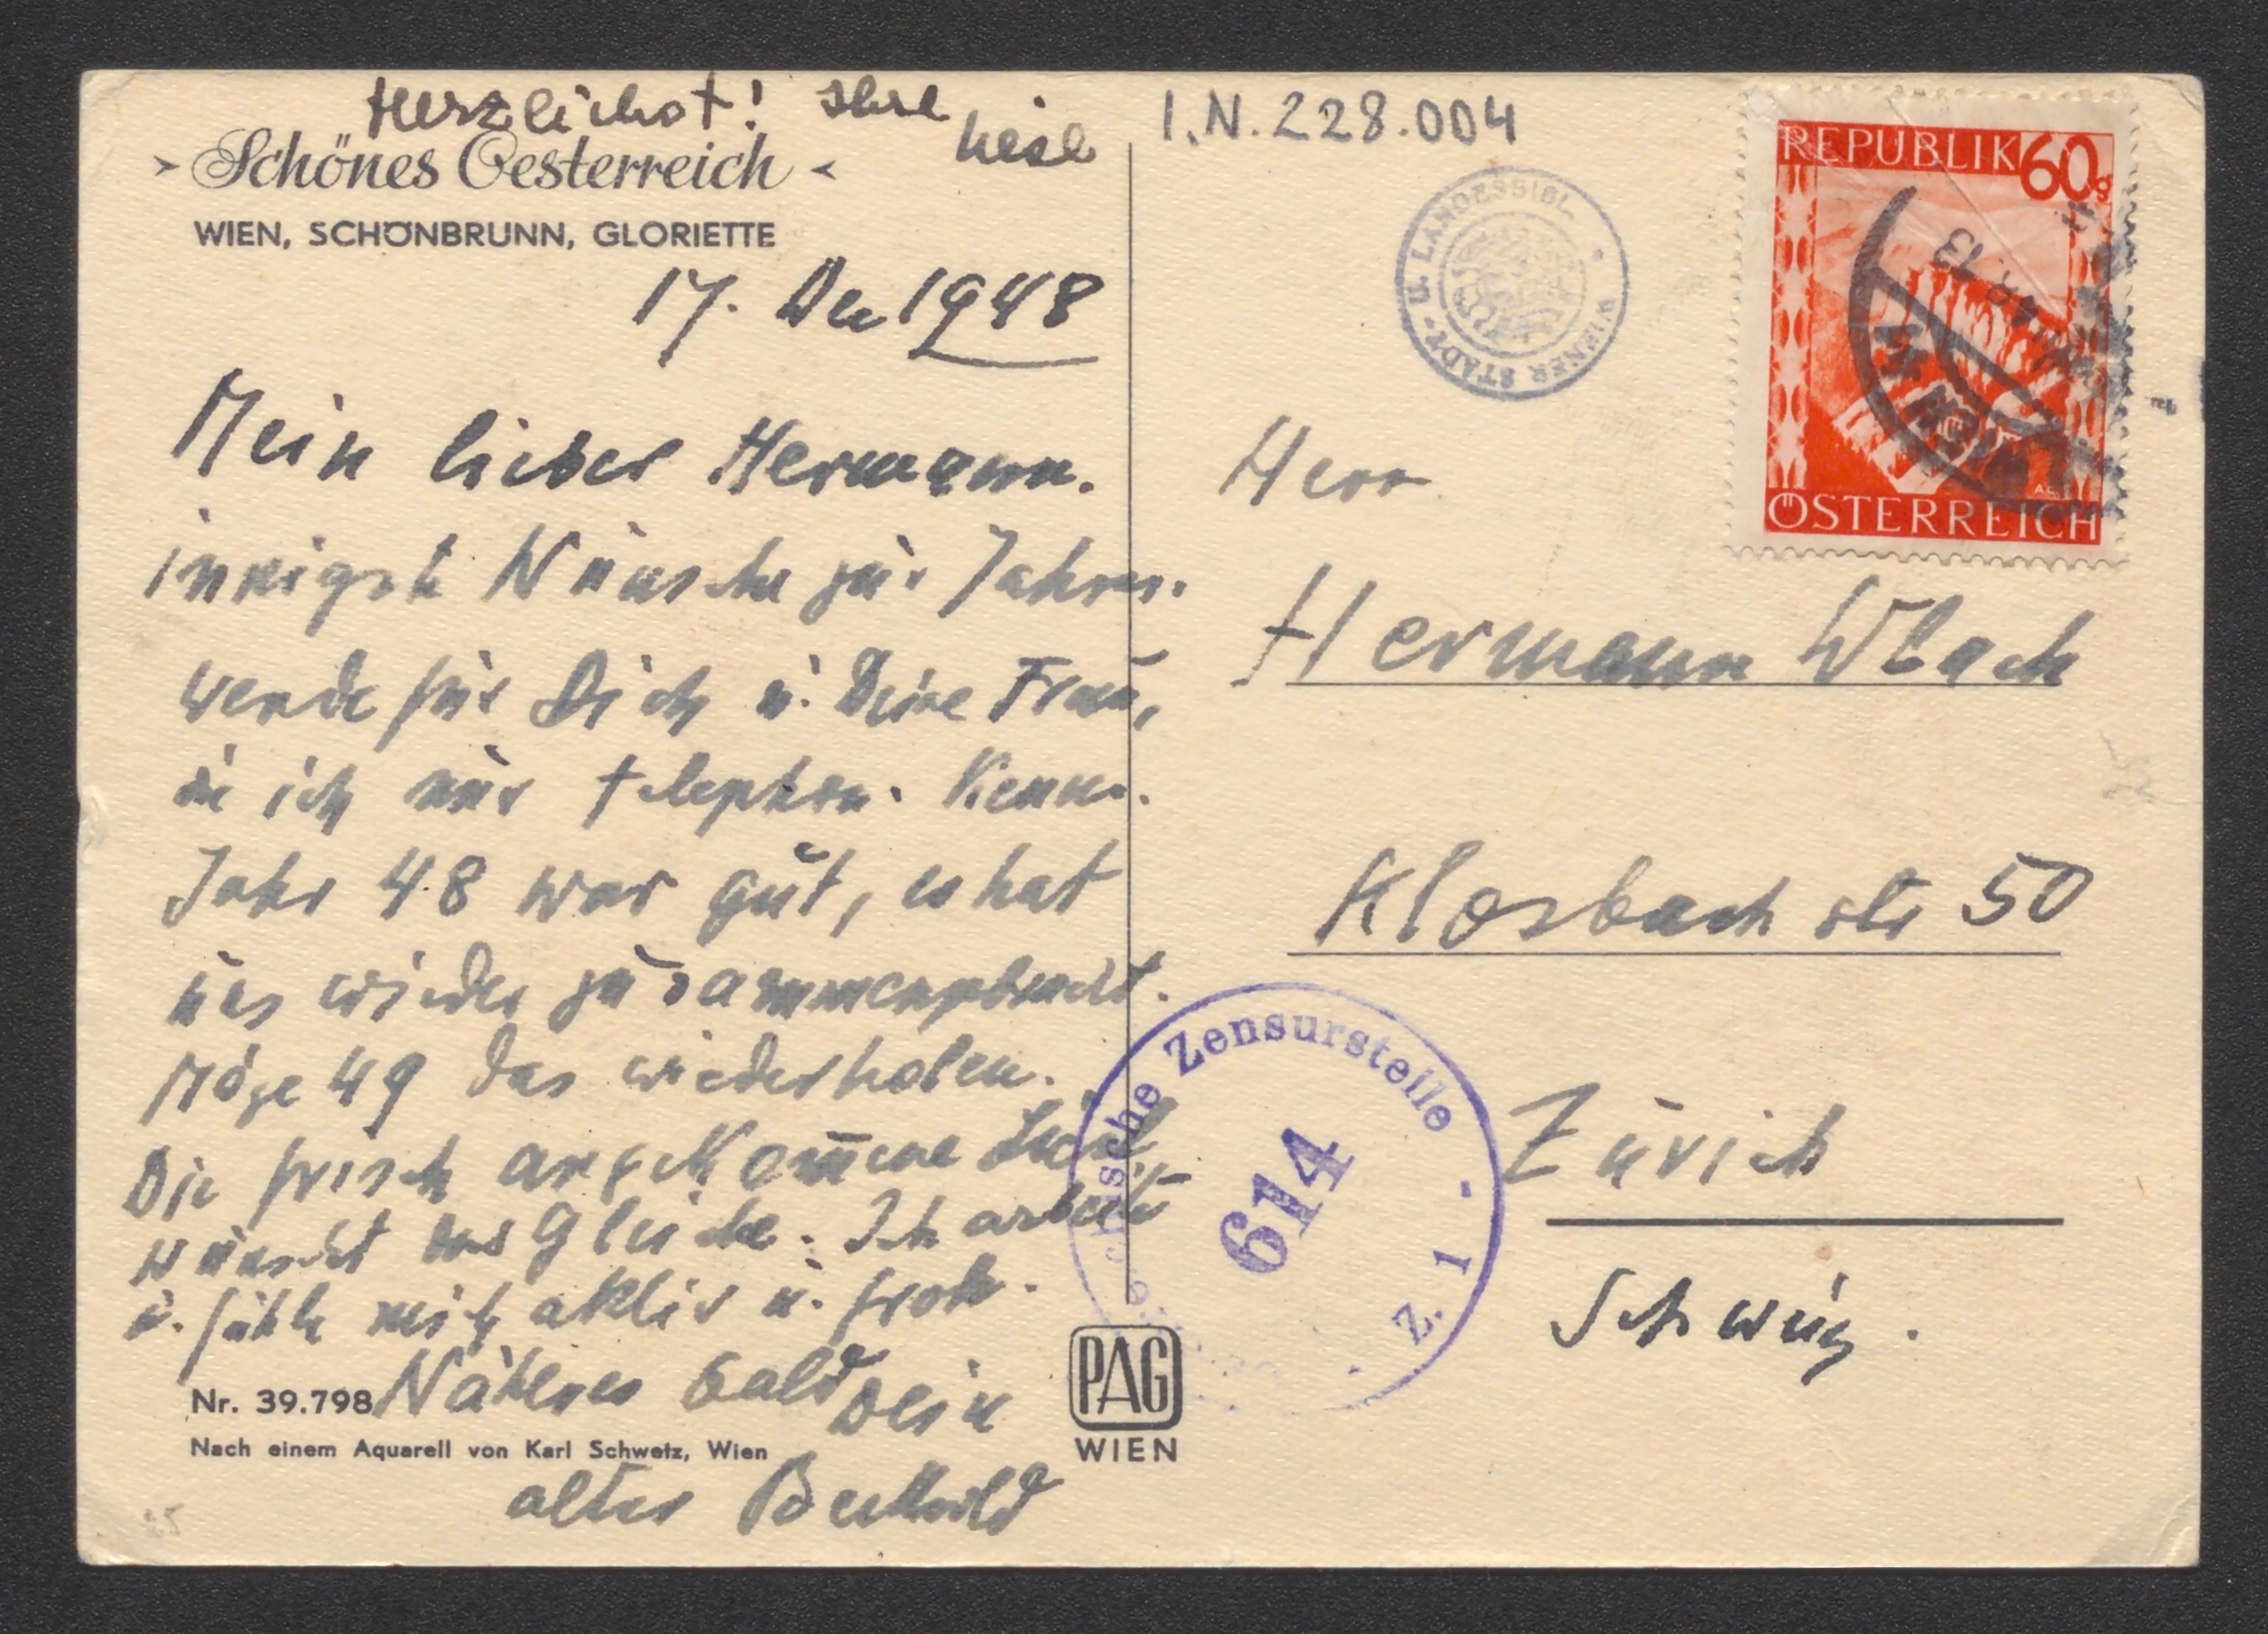 Herzlichst! Ihre
Liesl
Schönes Oesterreich
WIEN, SCHÖNBRUNN, GLORIETTE
17. Dez 1948
Mein lieber Hermann.
innigste Wünsche zur Jahres-
wende für Dich u. Deine Frau,
die ich nur telephon. Kenne.
Jahr 48 war gut, es hat
uns wieder zusammengebracht.
Möge 49 das wiederholen.
Die frisch angekom̅ene
wünscht das Gleiche. Ich arbeite
u. fühle mich aktiv u. froh.
Näheres bald Dein
alter Berthold
Nr. 39.798
Nach einem Aquarell von Karl Schwetz, Wien
PAG
WIEN
I.N. 228.004
WIENER STADT- U. LANDESBIBL.
REPUBLIK 60g
ÖSTERREICH
WIEN
Herr
Hermann Wlach
Klosbachstr 50
Zürich
Schweiz.
Zensurstelle
614
Z. 1